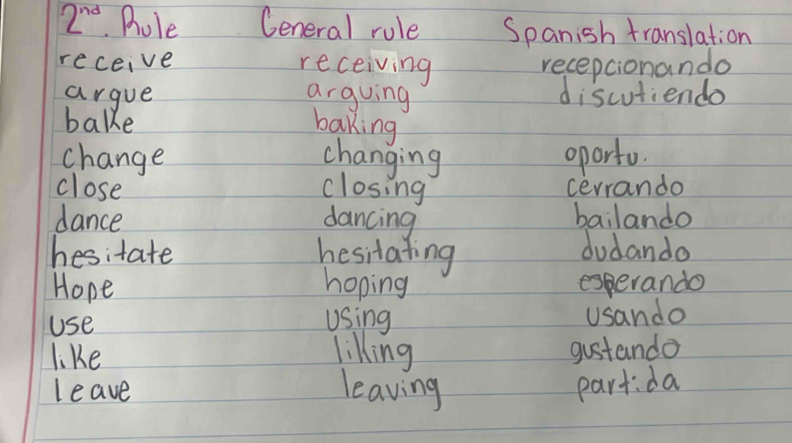 2nd. Rule General rule Spanish translation
receive receiving recepcionando
argue arguing discutiendo
bake baking
change changing oportu.
close closing cerrando
dance dancing bailando
hesitate hesitating dudando
Hope hoping esperando
use using usando
like liking gustando
leave leaving partida